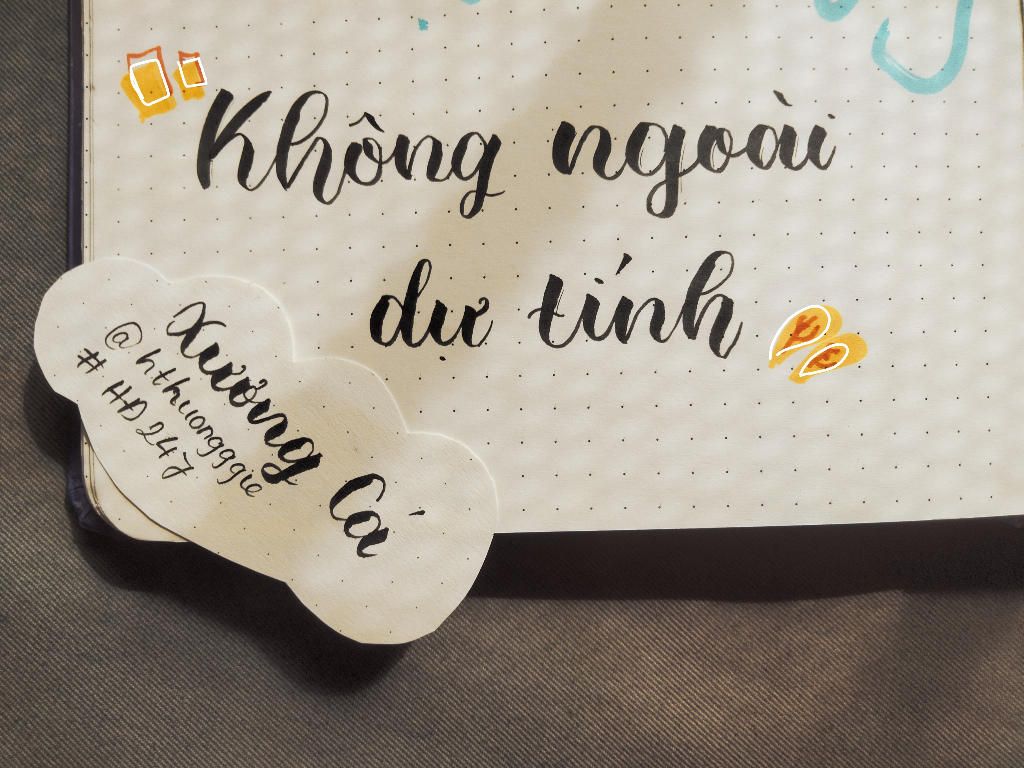 Không ngoài
dự tính
Xương Cá
@hthuongggie
#HĐ247